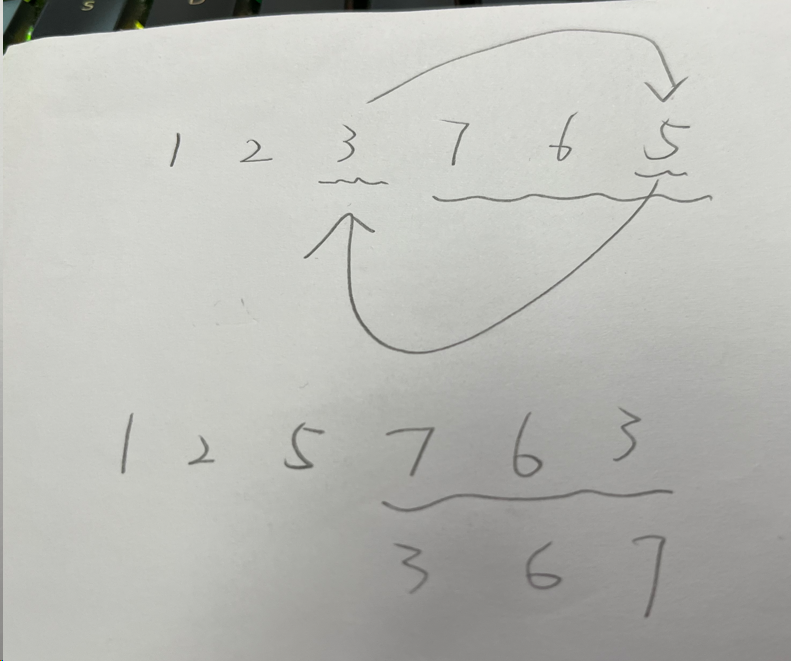 S D
1 2 3 7 6 5
1 2 5 7 6 3
3 6 7